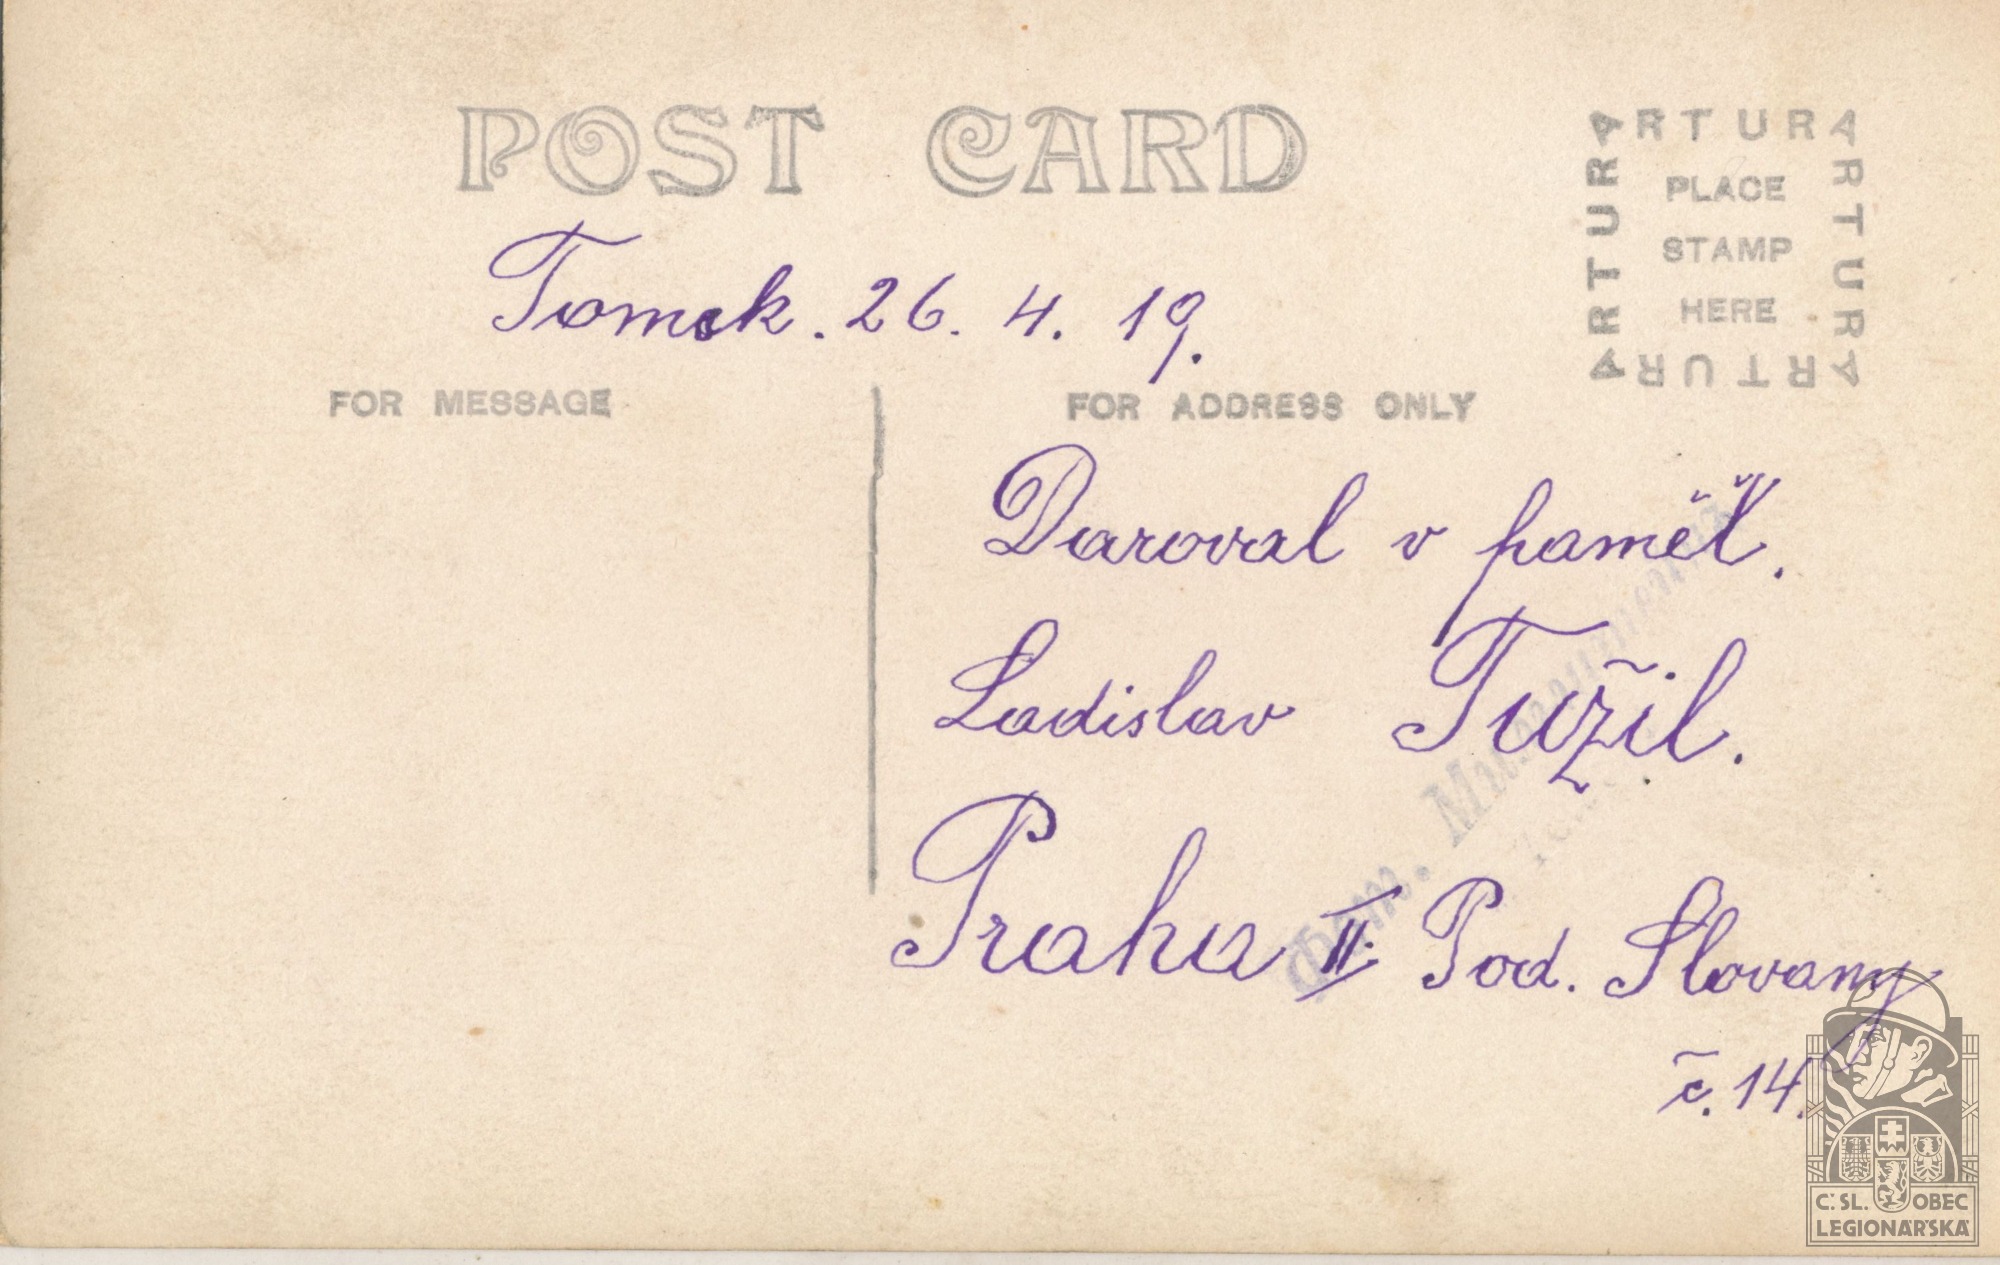 POST CARD
ARTURA
ARTURA
ARTURA
ARTURA
PLACE
STAMP
HERE
Tomsk. 26. 4. 19.
FOR MESSAGE
FOR ADDRESS ONLY
Daroval v paměť.
Ladislav Tužil.
Praha II. Pod. Slovany
č. 14.
Фот.
C.SL. OBEC
LEGIONÁŘSKÁ